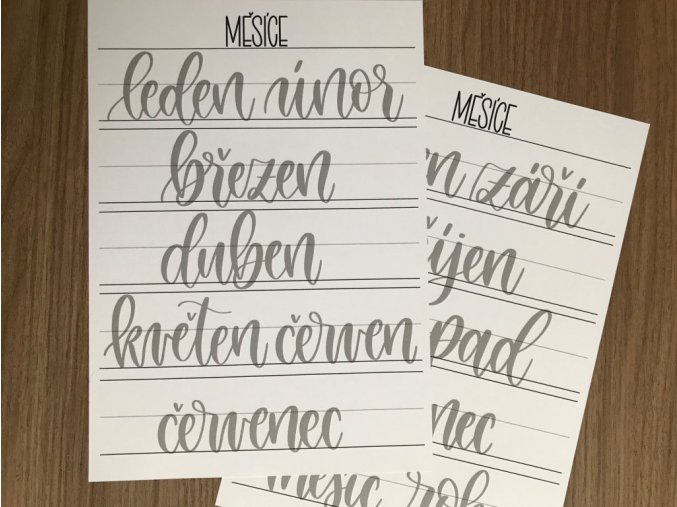 MĚSÍCE
leden únor
březen
duben
květen červen
červenec
MĚSÍCE
en září
říjen
pad
nec
měsíc rok